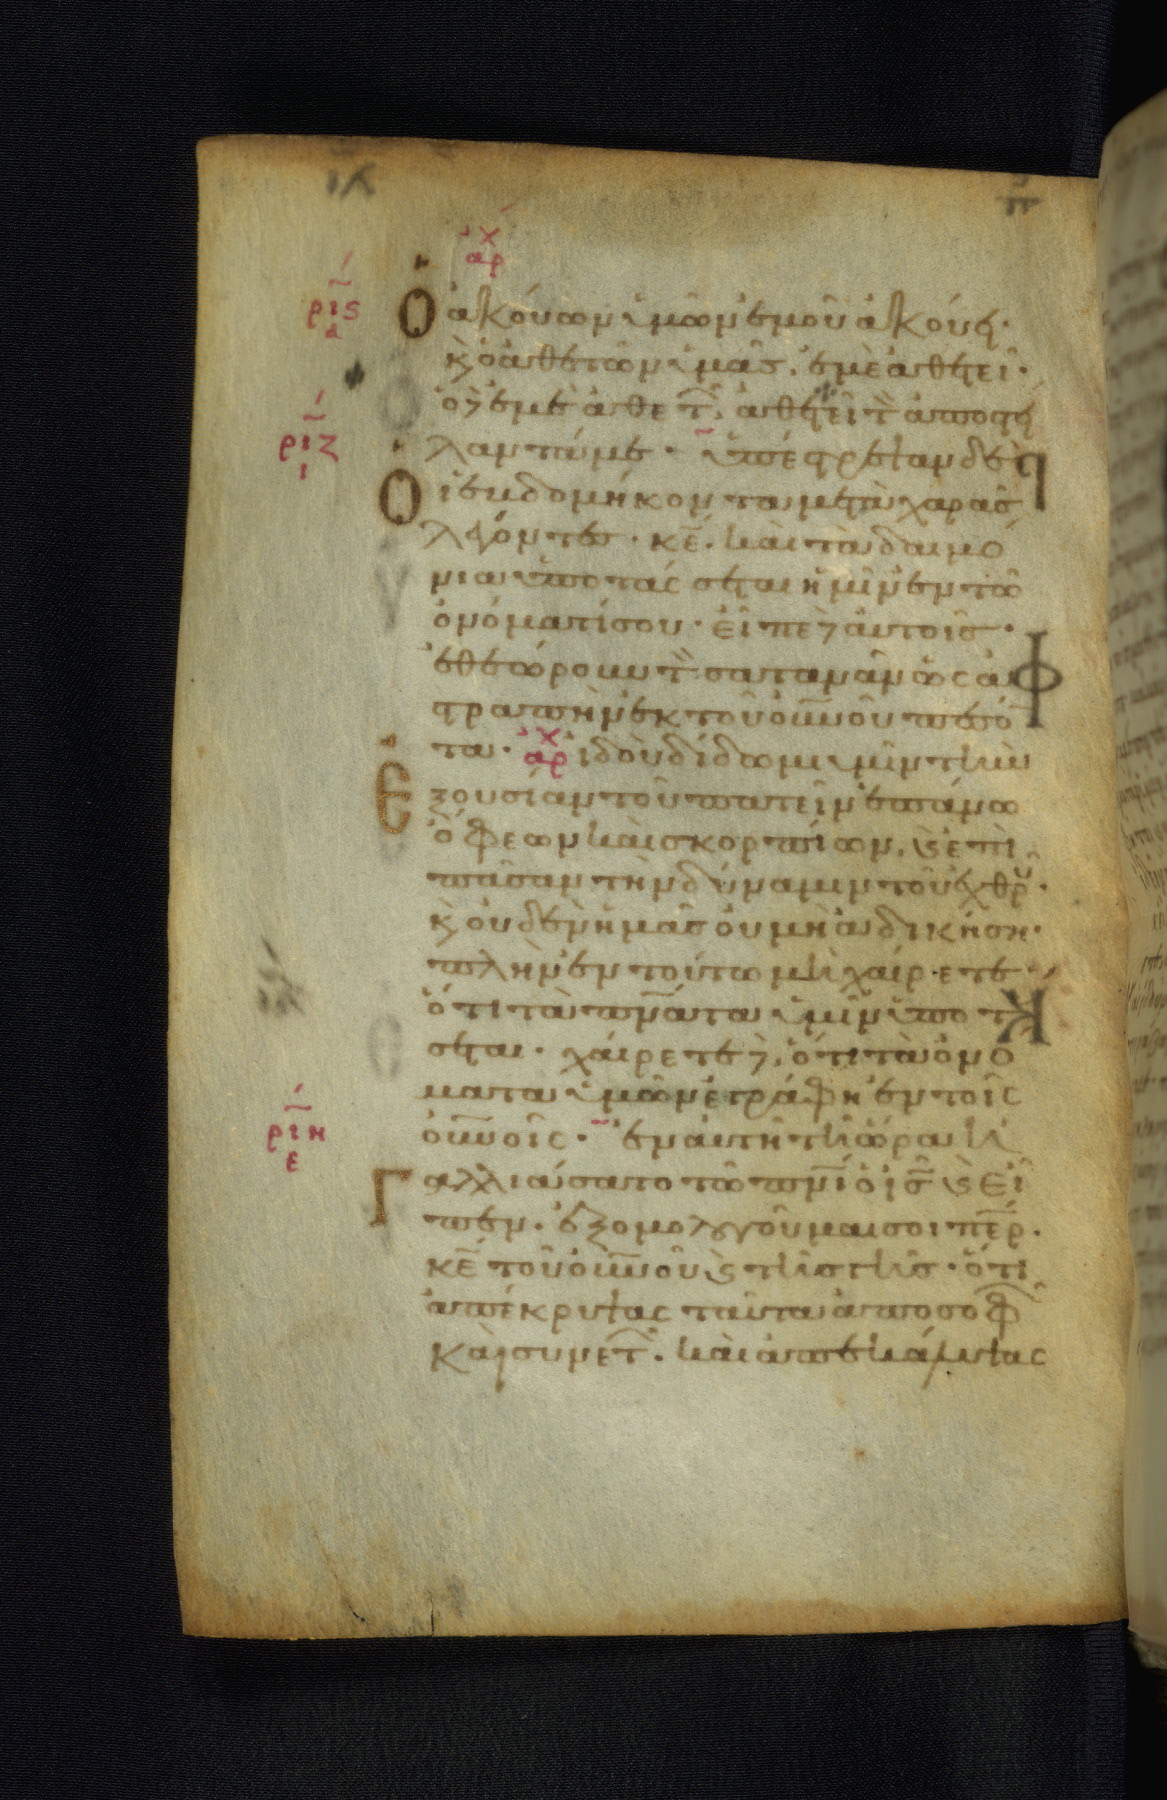 ἀρχ
ρις
α
Ὁ ἀκούων ὑμῶν ἐμοῦ ἀκούει·
κ̀ ὁ ἀθετῶν ὑμᾶς, ἐμὲ ἀθετεῖ·
ὁ δ̀ ἐμὲ ἀθετ, ἀθετεῖ τ̀ ἀποστεί
ριζ
ι
λαντά με· ὑπέστρεψαν δὲ
Οἱ ἑβδομήκοντα μετὰ χαρᾶς
λέγοντες· κε̄. καὶ τὰ δαιμό
νια ὑποτάσσεται ἡμῖν ἐν τῶ
ὀνόματί σου· εἶπε δ̀ αὐτοῖς·
ἐθεώρουν τ̀ σατανᾶν ὡς ἀ
στραπὴν ἐκ τοῦ οὐνοῦ πεσό
τα· ἀρχ ἰδοὺ δίδωμι ὑμῖν τὴν
Ἐξουσίαν τοῦ πατεῖν ἐπάνω
ὄφεων καὶ σκορπίων, κ̀ ἐπὶ
πᾶσαν τὴν δύναμιν τοῦ ἐχθρ·
κ̀ οὐδὲν ἡμᾶς οὐ μὴ ἀδικήση·
πλὴν ἐν τούτω μὴ χαίρετε
ὅτι τὰ πνᾱτα ὑμῖν ὑποτά
σεται· χαίρετε δ̀, ὅτι τὰ ὀνό
ματα ὑμῶν ἐγράφη ἐν τοῖς
ριη
ε
οὐνοῖς· ἐν αὐτῆ τῆ ὥρα ἠ
Γαλλιάσατο τῶ πνῑ ὁ ις̄ κ̀ εἶ
πεν· ἐξομολογοῦμαί σοι πε̄ρ·
κε̄ τοῦ οὐνοῦ κ̀ τῆς γῆς· ὅτι
ἀπέκρυψας ταῦτα ἀπὸ σοφ
καὶ συνετ· καὶ ἀπεκάλυψας